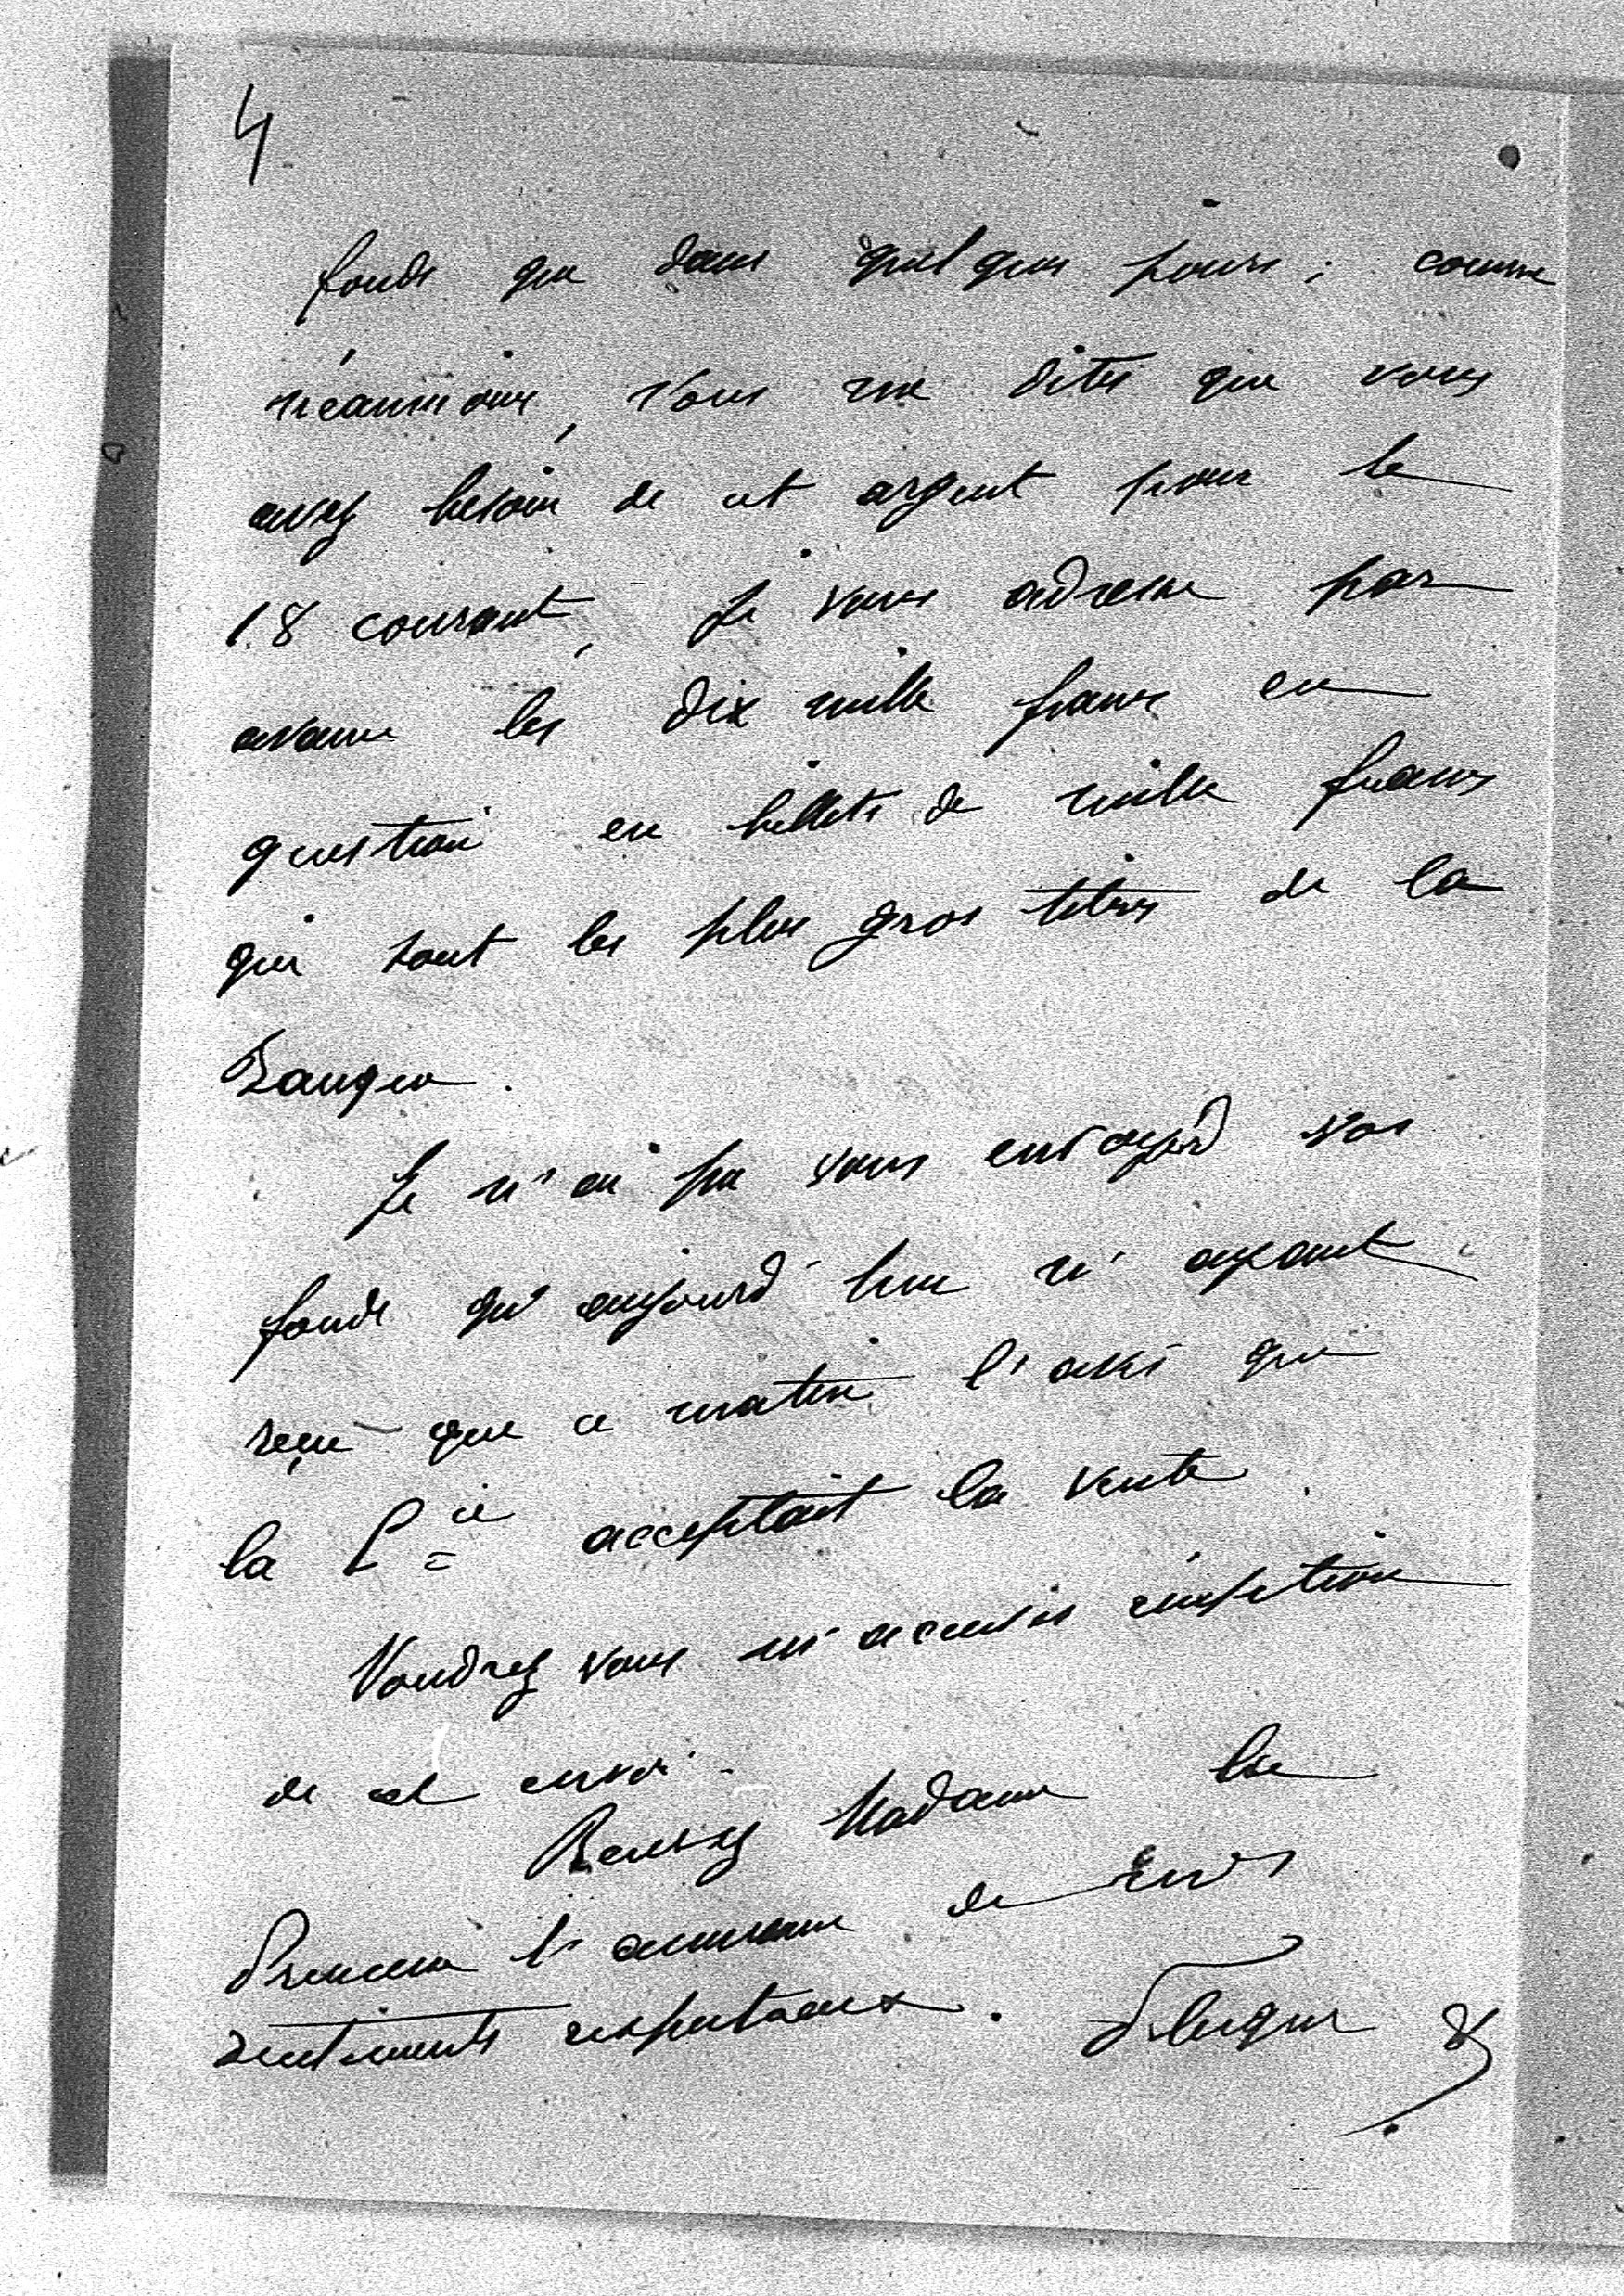 4
fonds que dans quelques jours ; comme
néanmoins, vous me dites que vous
avez besoin de cet argent pour le
18 courant, Je vous adresse par
avance les dix mille francs en
question en billets de mille francs
qui sont les plus gros titres de la
Banque.
Je n'ai pu vous envoyer vos
fonds qu'aujourd'hui n'ayant
reçu que ce matin l'avis que
la Cie acceptait la vente.
Voudrez vous m'accuser réception
de cet envoi.
Recevez Madame la
Princesse l'assurance de mes
sentiments respectueux.